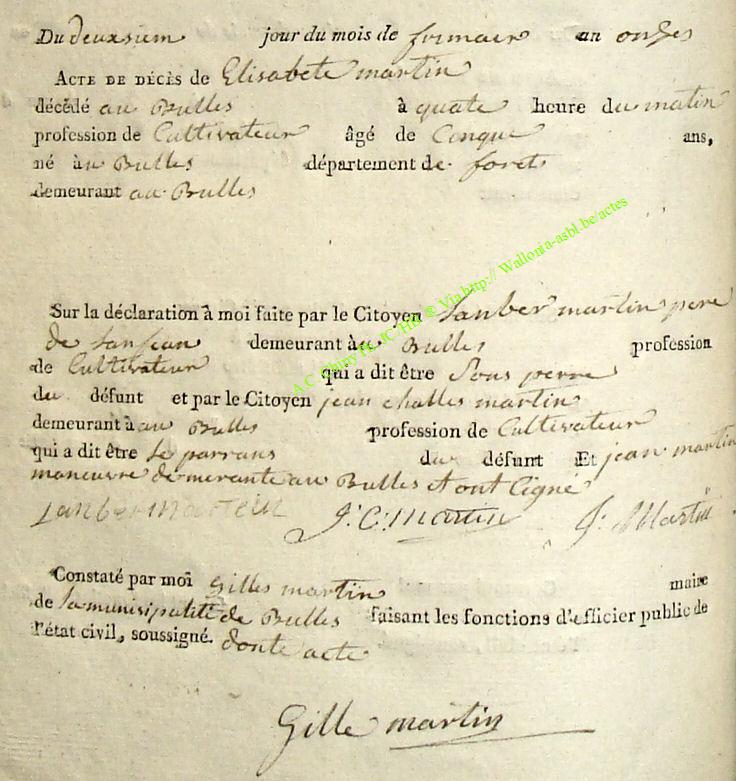 Du deuxsiem jour du mois de frimair an onzes
ACTE DE DÉCÈS de Elisabete martin
décédé au Bulles à quate heure du matin
profession de Cultivateur âgé de Cinque ans,
né à au Bulles département de forets
demeurant au Bulles
Sur la déclaration à moi faite par le Citoyen Lanber martin pere
de lanfean demeurant à au Bulles profession
de Cultivateur qui a dit être Sons perre
du défunt et par le Citoyen jean challes martin
demeurant à au Bulles profession de Cultivateur
qui a dit être le parrans du défunt Et jean martin
maneuvre demerante au Bulles Et ont Cigné
Lanber martin J. C. martin J. Martin
Constaté par moi Gilles martin maire
de la munisipalité de Bulles faisant les fonctions d'efficier public de
l'état civil, soussigné. donte acte
Gille martin
A.C Chiny © Via http:// Wallonia-asbl.be/actes